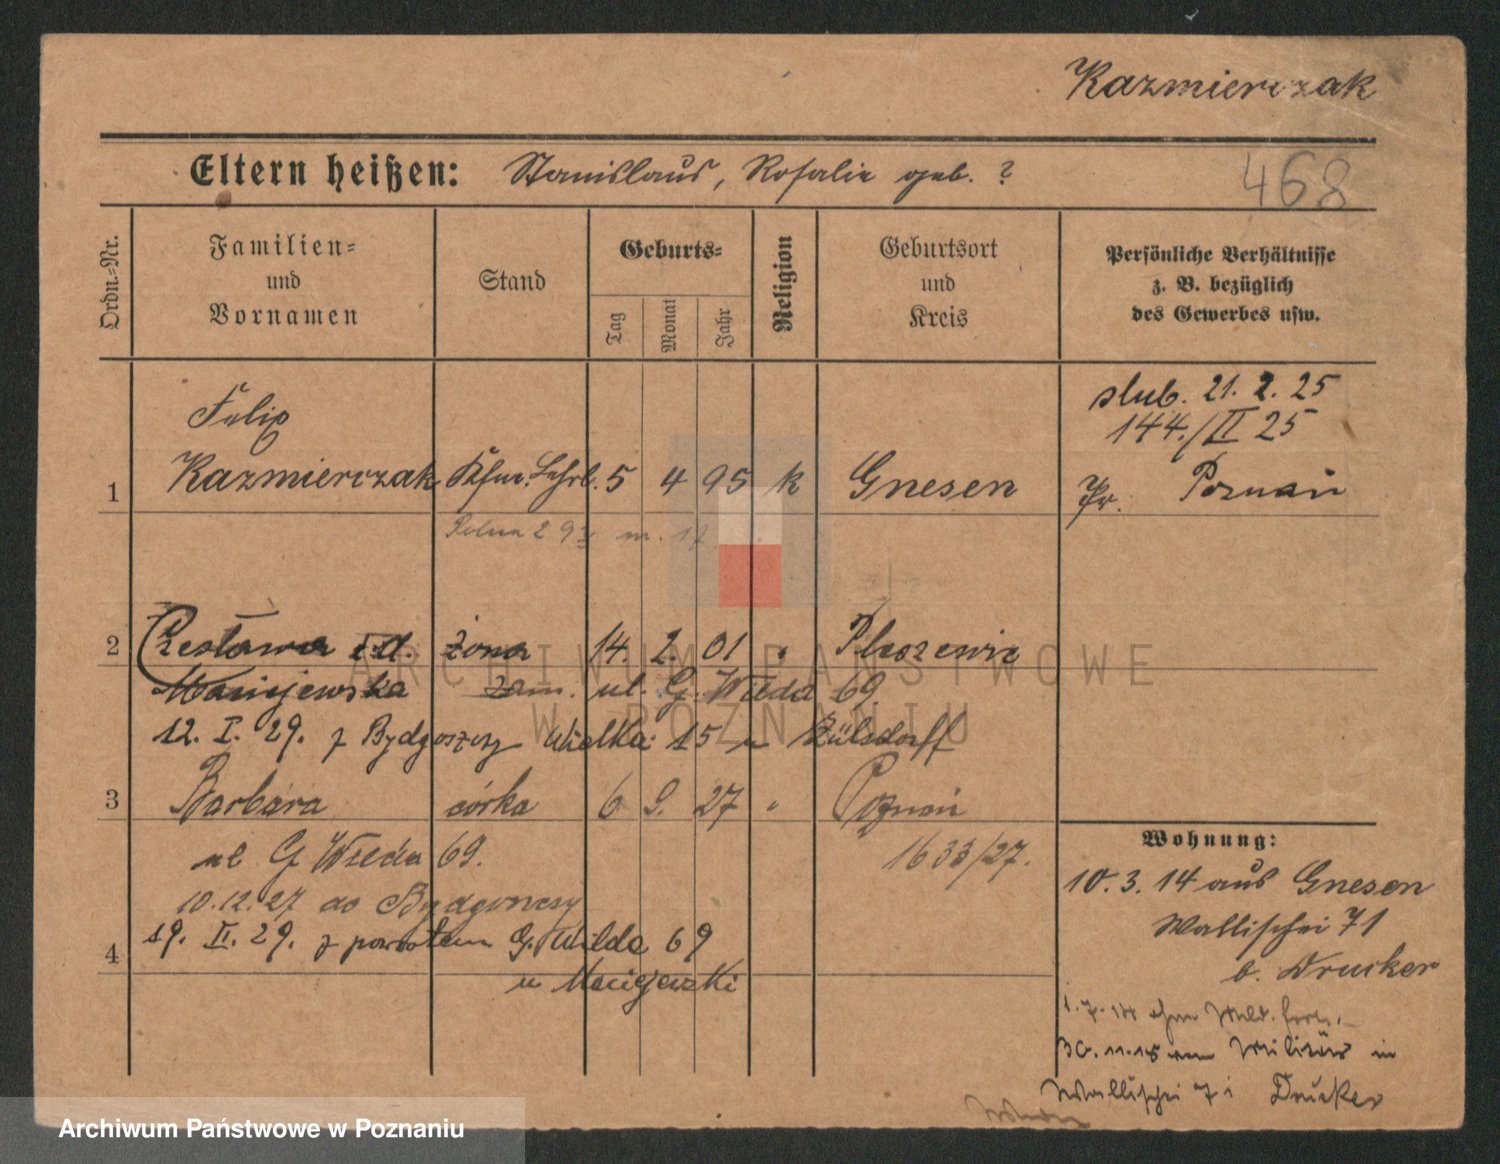 Kazmierczak
Eltern heißen: Stanislaus, Rosalie geb. ?
468
Ordn.=Nr.
Familien=
und
Vornamen
Stand
Geburts=
Tag
Monat
Jahr
Religion
Geburtsort
und
Kreis
Persönliche Verhältnisse
z. B. bezüglich
des Gewerbes usw.
slub. 21. 2. 25
144./II 25
Pr. Poznań
Felix
1 Kazmierczak Kfm. Lehrl. 5 4 95 k Gnesen
m. 17
2 Czesława z d. żona 14. 2. 01 " Pleszewie
Maciejewska zam. ul. G. Wilda 69
12. I. 29. z Bydgoszczy Wielka 15 u Zülsdorff
3 Barbara córka 6 9. 27 " Poznań
ul G Wilda 69. 1633/27.
10.12.27 do Bydgoszczy
4 19. II. 29. z powrotem G. Wilda 69
u Maciejewski
Wohnung:
10. 3. 14 aus Gnesen
Wallischei 71
b. Drucker
1. 7. 14 ohne Meld. fort.
30. 11. 18 vom Militär in
Wallischei 71 Drucker
ARCHIWUM PAŃSTWOWE
W POZNANIU
Archiwum Państwowe w Poznaniu